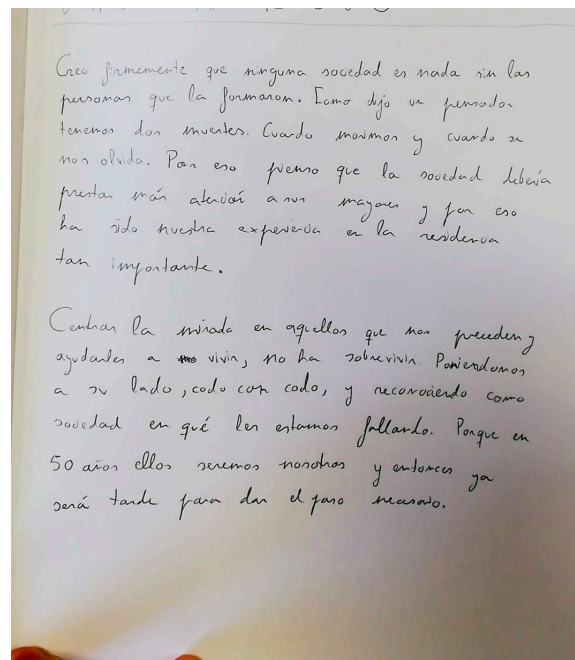 Creo firmemente que ninguna sociedad es nada sin las
personas que la formaron. Como dijo un pensador
tenemos dos muertes. Cuando morimos y cuando se
nos olvida. Por eso pienso que la sociedad debería
prestar más atención a sus mayores y por eso
ha sido nuestra experiencia en la residencia
tan importante.
Centrar la mirada en aquellos que nos preceden y
ayudarles a vivir, no ha sobrevivir. Poniendonos
a su lado, codo con codo, y reconociendo como
sociedad en qué les estamos fallando. Porque en
50 años ellos seremos nosotros y entonces ya
será tarde para dar el paso necesario.